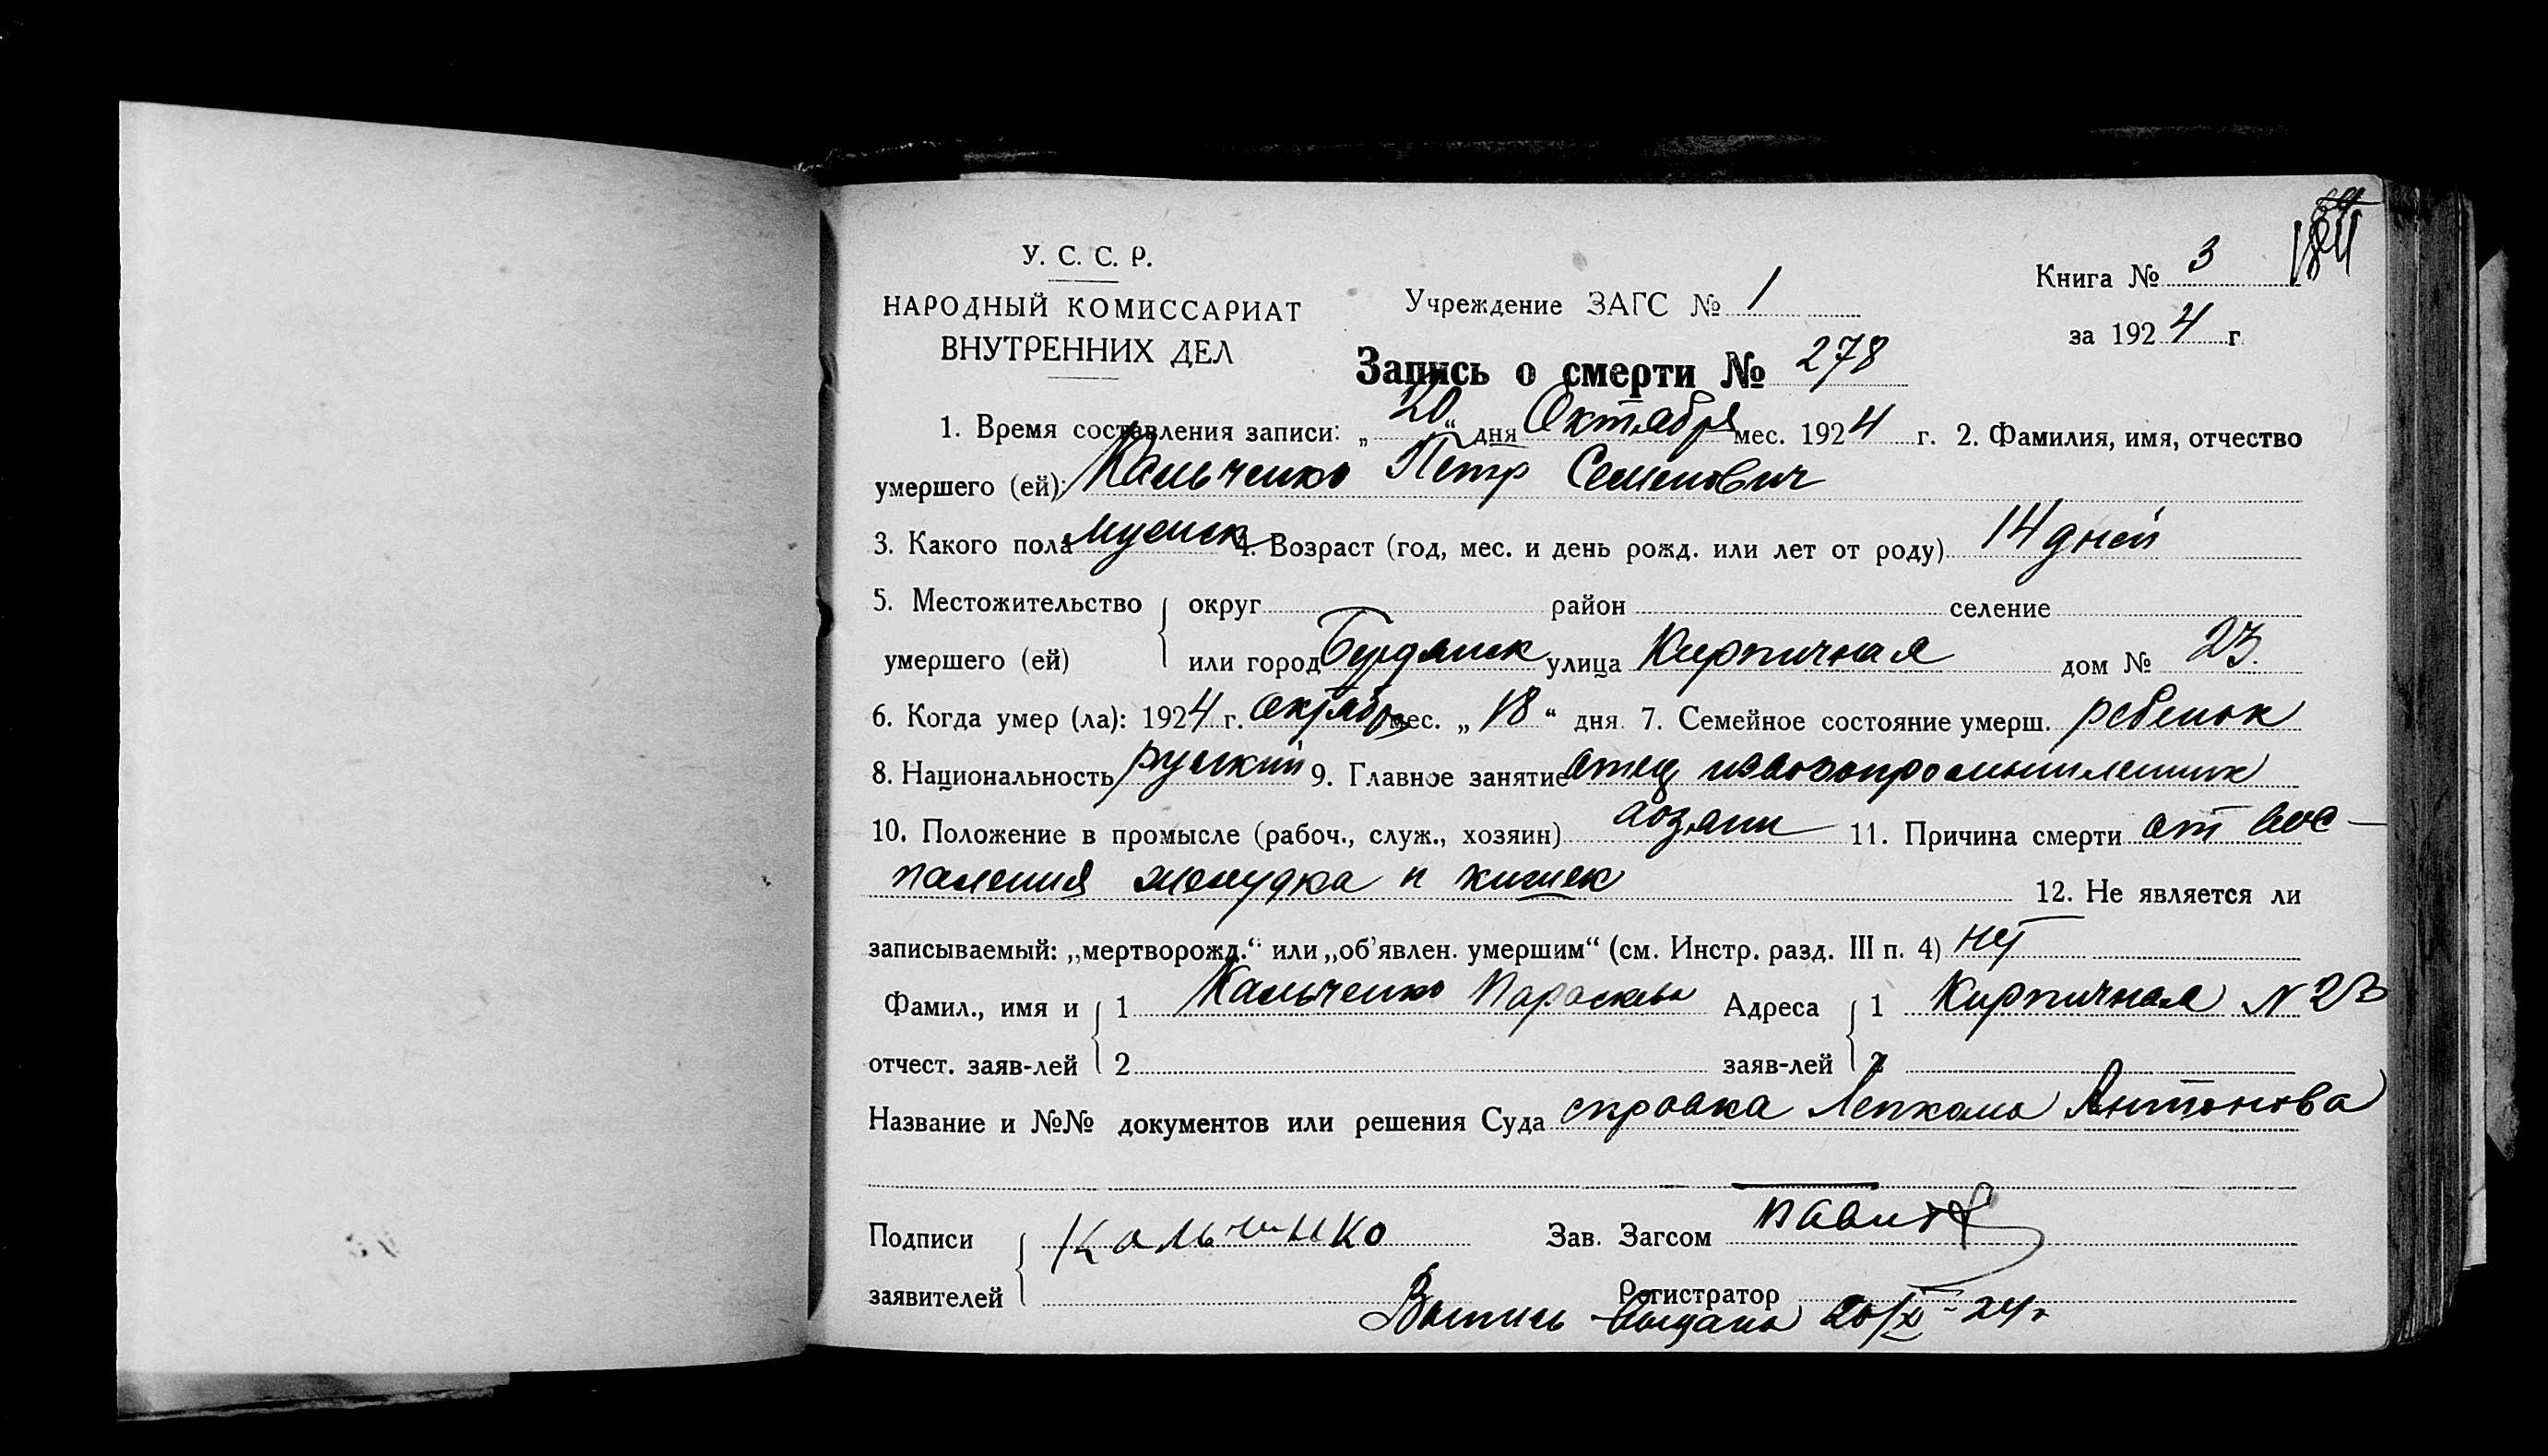 184
У. С. С. Р.
НАРОДНЫЙ КОМИССАРИАТ
ВНУТРЕННИХ ДЕЛ
Учреждение ЗАГС № 1
Книга № 3
за 1924 г.
Запись о смерти № 278
1. Время составления записи: „20“ дня Октября мес. 1924 г. 2. Фамилия, имя, отчество
умершего (ей): Кальченко Петр Семенович
3. Какого пола мужск 4. Возраст (год, мес. и день рожд. или лет от роду) 14 дней
5. Местожительство { округ район селение
умершего (ей) или город Бердянск улица Кирпичная дом № 23.
6. Когда умер (ла): 1924 г. октября мес. „18“ дня. 7. Семейное состояние умерш. ребенок
8. Национальность русский 9. Главное занятие отец извозопромышленник
10. Положение в промысле (рабоч., служ., хозяин) хозяин 11. Причина смерти от вос-
паления желудка и кишек 12. Не является ли
записываемый: „мертворожд.“ или „об’явлен. умершим“ (см. Инстр. разд. III п. 4) нет
Фамил., имя и { 1 Кальченко Параскева Адреса { 1 Кирпичная N 23
отчест. заяв-лей 2 заяв-лей 2
Название и №№ документов или решения Суда справка Лепкома Антонова
Подписи { Кальченко Зав. Загсом
заявителей Регистратор
Выпись выдана 20/X-24 г